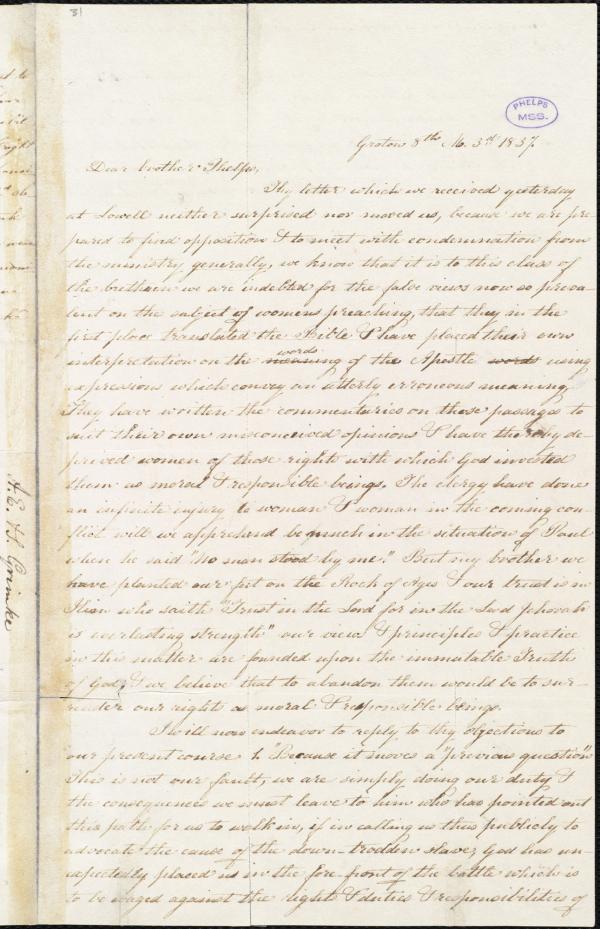 31
PHELPS
MSS.
Groton 8th Mo. 3rd 1837.
Dear brother Phelps,
Thy letter which we received yesterday
at Lowell neither surprised nor moved us, because we are pre-
pared to find opposition & to meet with condemnation from
the ministry generally, we know that it is to this class of
the brethren we are indebted for the false views now so preva-
lent on the subject of womens preaching, that they in the
first place translated the Bible & have placed their own
words
interpretation on the meaning of the Apostle words using
expressions which convey an utterly erroneous meaning
They have written the commentaries on those passages to
suit their own misconceived opinions & have thereby de-
prived women of those rights with which God invested
them as moral & responsible beings. The clergy have done
an infinite injury to woman & woman in the coming con-
flict will we apprehend be much in the situation of Paul
when he said "No man stood by me." But my brother we
have planted our feet on the Rock of Ages & our trust is in
Him who saith "Trust in the Lord for in the Lord Jehovah
is everlasting strength" our views & principles & practice
in this matter are founded upon the immutable Truth
of God, & we believe that to abandon them would be to sur-
render our rights as moral & responsible beings.
I will now endeavor to reply to thy objections to
our present course 1. "Because it moves a "previous question"
This is not our fault, we are simply doing our duty &
the consequences we must leave to him who has pointed out
this path for us to walk in, if in calling us thus publicly to
advocate the cause of the down-trodden slave, God has un-
expectedly placed us in the fore-front of the battle which is
to be waged against the rights & duties & responsibilities of
A.E. & S. Grimke